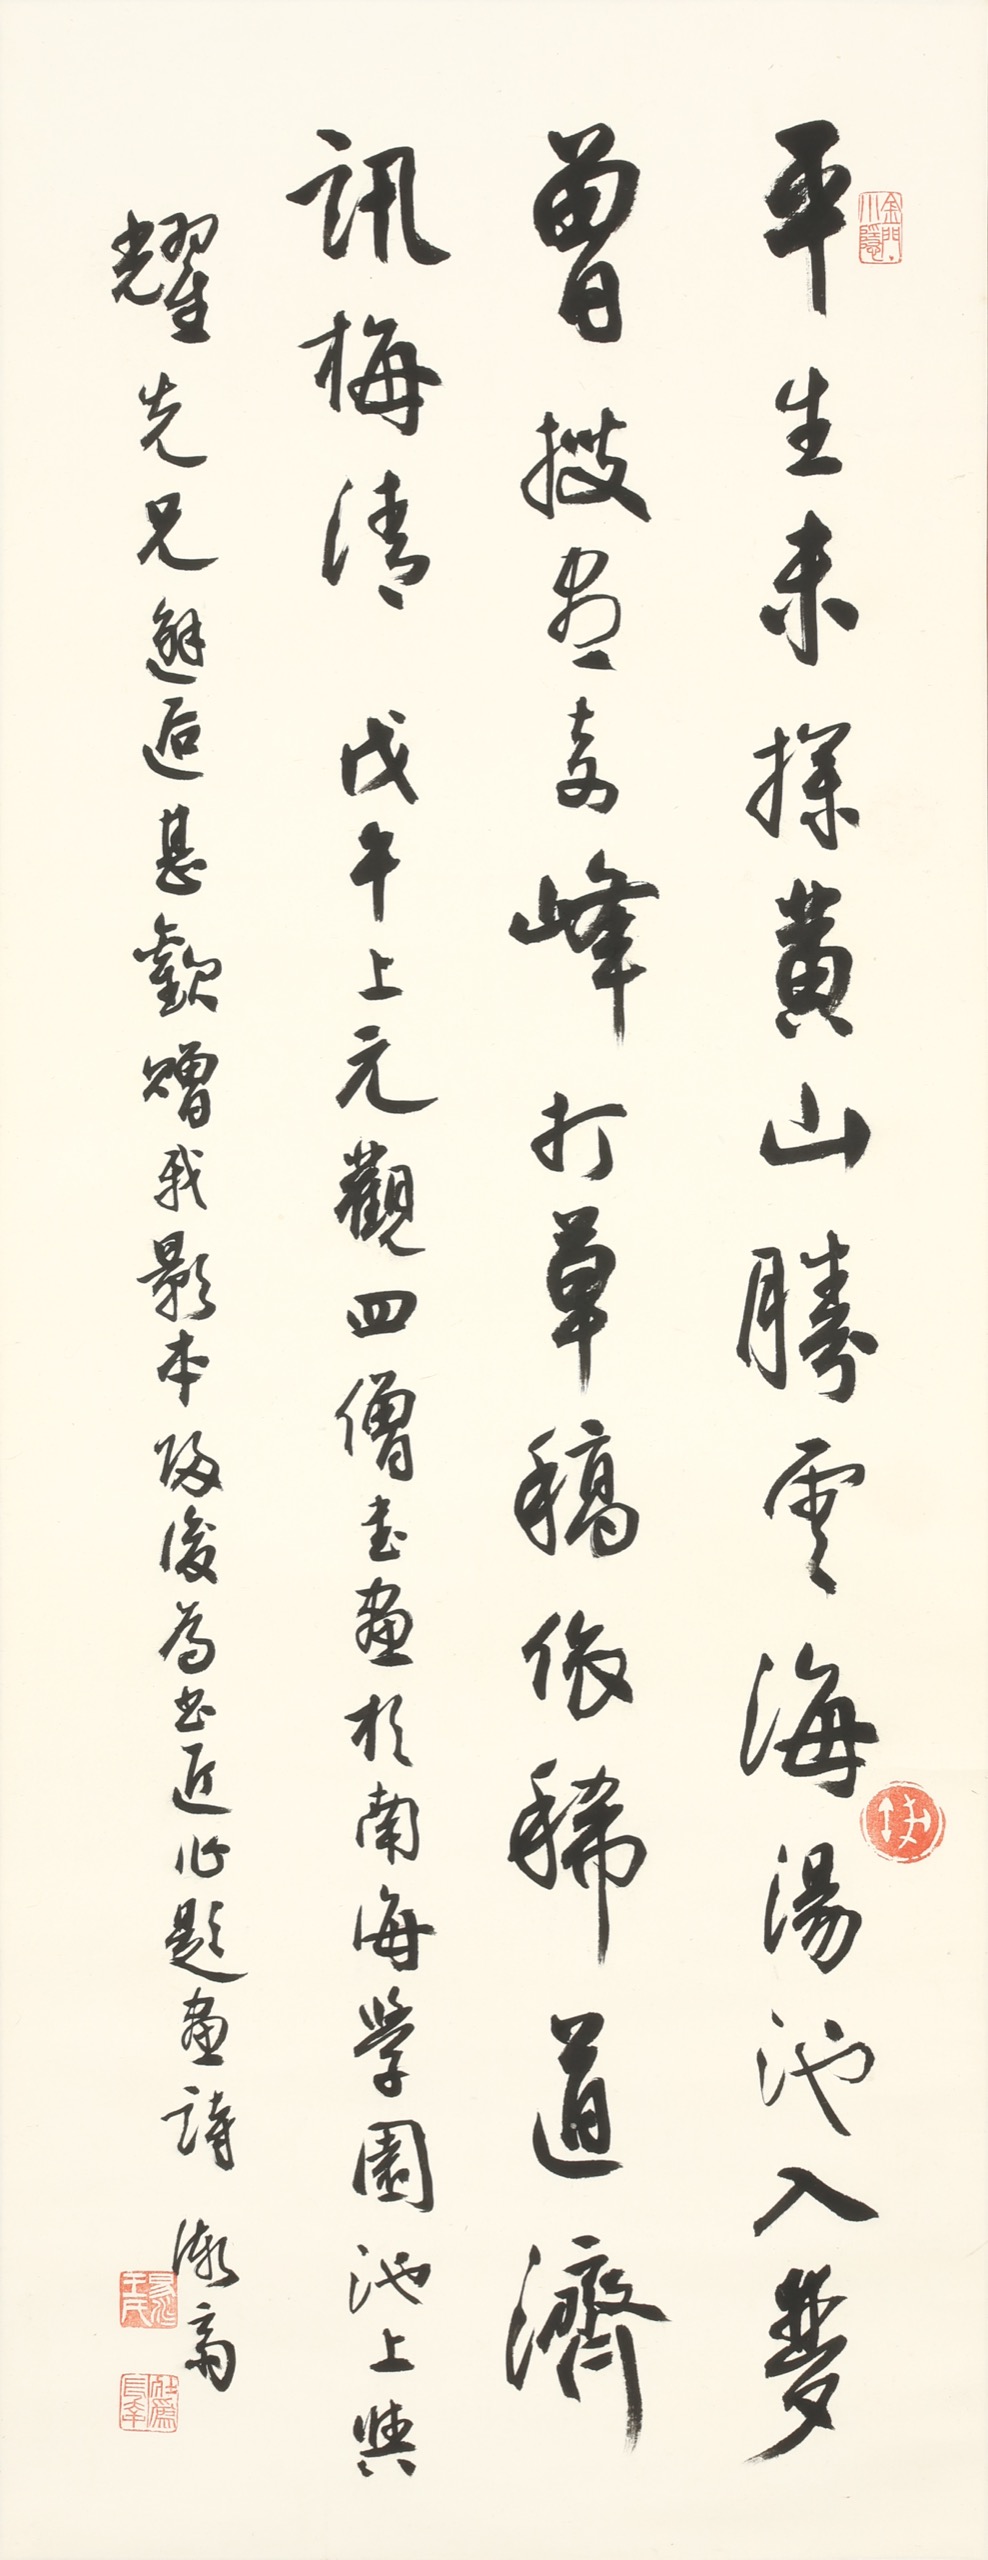 平生未探黃山勝雲海湯池入夢
曾搜盡奇峰打草稿依稀道濟
訊梅清 戊午上元觀四僧書畫於南海學園池上與
耀先兄邂逅甚歡贈我影本歸後為書近作題畫詩 漱齋
金門小隱